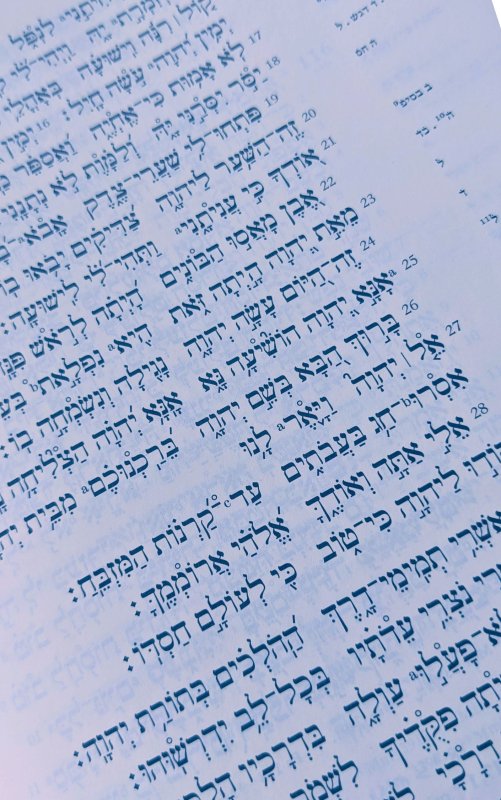 קוֹל ׀ רִנָּה וִישׁוּעָה בְּאָהֳלֵי
יְמִין יְהוָה עֹשָׂה חָיִל׃
17 לֹא אָמוּת כִּי־אֶחְיֶה וַאֲסַפֵּר
18 יַסֹּר יִסְּרַנִּי יָּהּ וְלַמָּוֶת לֹא נְתָנָנִי
19 פִּתְחוּ־לִי שַׁעֲרֵי־צֶדֶק אָבֹא־
20 זֶה־הַשַּׁעַר לַיהוָה צַדִּיקִים יָבֹאוּ בוֹ
21 אוֹדְךָ כִּי עֲנִיתָנִי a וַתְּהִי־לִי לִישׁוּעָה׃
22 אֶבֶן מָאֲסוּ הַבּוֹנִים הָיְתָה לְרֹאשׁ
23 מֵאֵת יְהוָה הָיְתָה זֹּאת הִיא a נִפְלָאת b
24 זֶה־הַיּוֹם עָשָׂה יְהוָה נָגִילָה וְנִשְׂמְחָה בוֹ׃
25 a אָנָּא יְהוָה הוֹשִׁיעָה נָּא אָנָּא יְהוָה הַצְלִיחָה
26 בָּרוּךְ הַבָּא בְּשֵׁם יְהוָה בֵּרַכְנוּכֶם a מִבֵּית
27 אֵל ׀ יְהוָה וַיָּאֶר a לָנוּ
אִסְרוּ b־חַג בַּעֲבֹתִים עַד־c קַרְנוֹת הַמִּזְבֵּחַ׃
28 אֵלִי אַתָּה וְאוֹדֶךָּ אֱלֹהַי אֲרוֹמְמֶךָּ׃
לַיהוָה כִּי־טוֹב כִּי לְעוֹלָם חַסְדּוֹ׃
תְמִימֵי־דָרֶךְ הַהֹלְכִים בְּתוֹרַת יְהוָה׃
נֹצְרֵי עֵדֹתָיו בְּכָל־לֵב יִדְרְשׁוּהוּ׃
פָעֲלוּ a עַוְלָה בִּדְרָכָיו
פִקֻּדֶיךָ לִשְׁמֹר
דְרָכָי